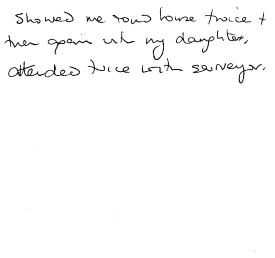 Showed me round house twice +
then again with my daughter,
attended twice with surveyor.